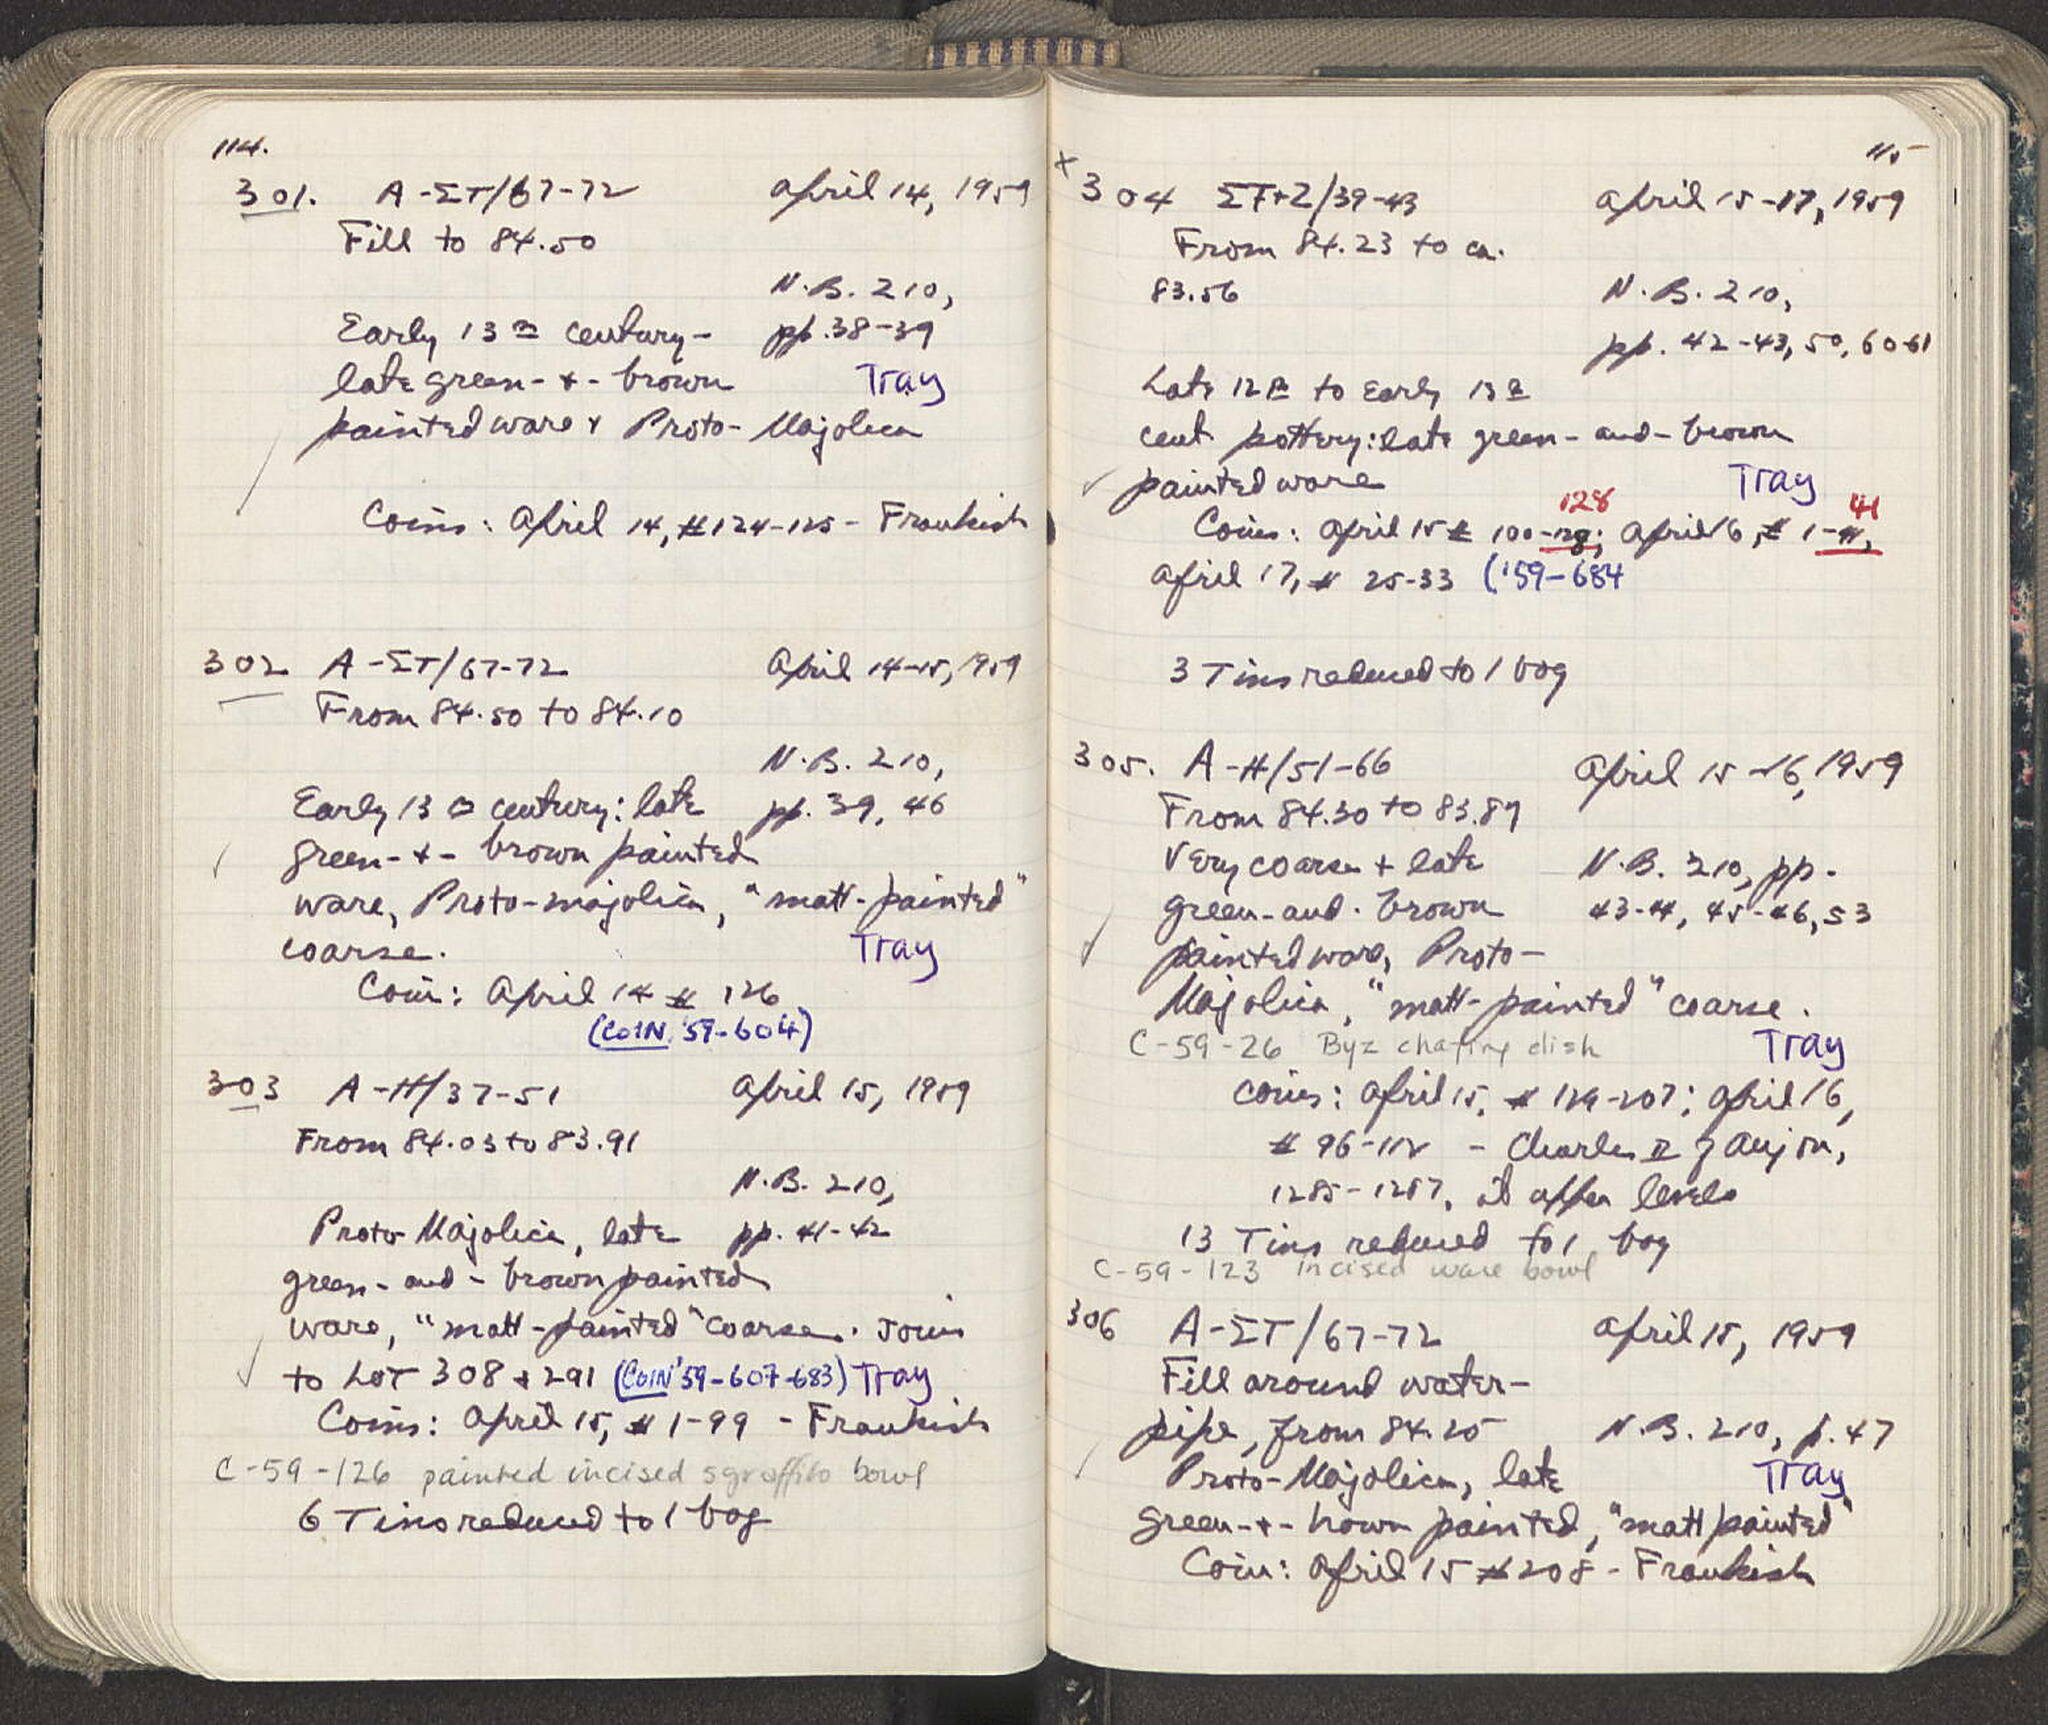 114.
301. A-ΣT/67-72 April 14, 1959
Fill to 84.50
N.B. 210,
Early 13th century- pp. 38-39
late green-+-brown Tray
painted ware + Proto-Majolica
Coins: April 14, #124-125 - Frankish
302 A-ΣT/67-72 April 14-15, 1959
From 84.50 to 84.10
N.B. 210,
Early 13th century: late pp. 39, 46
green-+-brown painted
ware, Proto-majolica, "matt-painted"
coarse. Tray
Coin: April 14 # 126
(COIN '59-604)
303 A-H/37-51 April 15, 1959
From 84.03 to 83.91
N.B. 210,
Proto-Majolica, late pp. 41-42
green-and-brown painted
ware, "matt-painted" coarse. Joins
to Lot 308 + 291 (COIN '59-607-683) Tray
Coins: April 15, #1-99 - Frankish
C-59-126 painted incised sgraffito bowl
6 Tins reduced to 1 bag
115
x 304 ΣT+Z/39-43 April 15-17, 1959
From 84.23 to ca.
83.56 N.B. 210,
pp. 42-43, 50, 60-61
Late 12th to Early 13th
cent pottery: late green-and-brown
painted ware Tray
128 41
Coins: April 15 # 100-128; April 16, # 1-41,
April 17, # 25-33 ('59-684
3 Tins reduced to 1 bag
305. A-H/51-66 April 15-16, 1959
From 84.30 to 83.89
Very coarse + late N.B. 210, pp.
green-and-brown 43-44, 45-46, 53
painted ware, Proto-
Majolica, "matt-painted" coarse.
C-59-26 Byz chafing dish Tray
Coins: April 15, # 129-207; April 16,
# 96-112 - Charles II of Anjou,
1285-1287, in upper levels
13 Tins reduced to 1 bag
C-59-123 incised ware bowl
306 A-ΣT/67-72 April 15, 1959
Fill around water-
pipe, from 84.25 N.B. 210, p. 47
Proto-Majolica, late Tray
green-+-brown painted, "matt painted"
Coin: April 15 #208 - Frankish